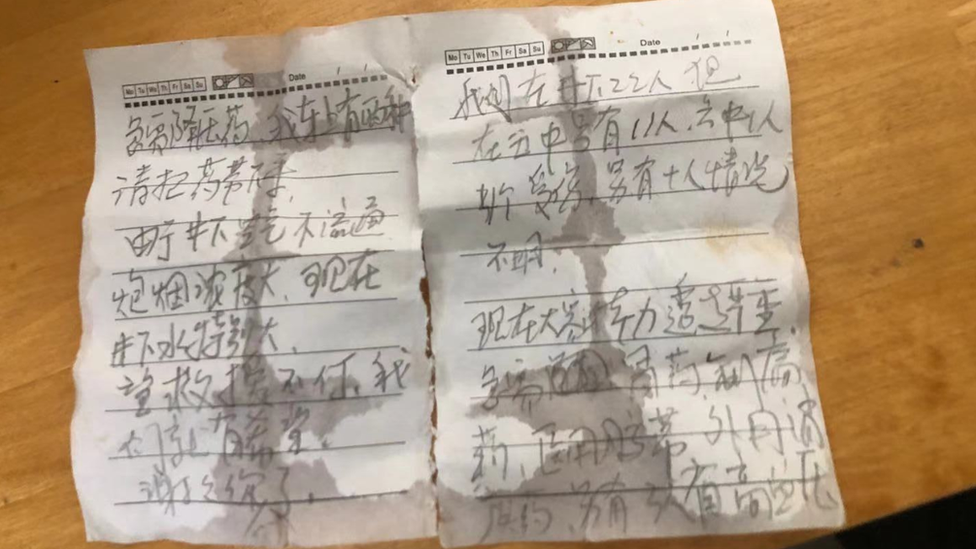 Mo Tu We Th Fr Sa Su Date
我们在井下22人 但
在五中段有11人,六中1人
受伤,另有十人情况
不明,
现在大家体力透支严重,
急需 胃药,
药,医用胶带,外用消
炎药,另有 人有高血压
Mo Tu We Th Fr Sa Su Date
急需降压药,我车上有两种
请把药带下来,
由于井下空气不流通
炮烟浓度大,现在
井下水特别大,
望救援不停,我
们就有希望.
谢谢你们了.